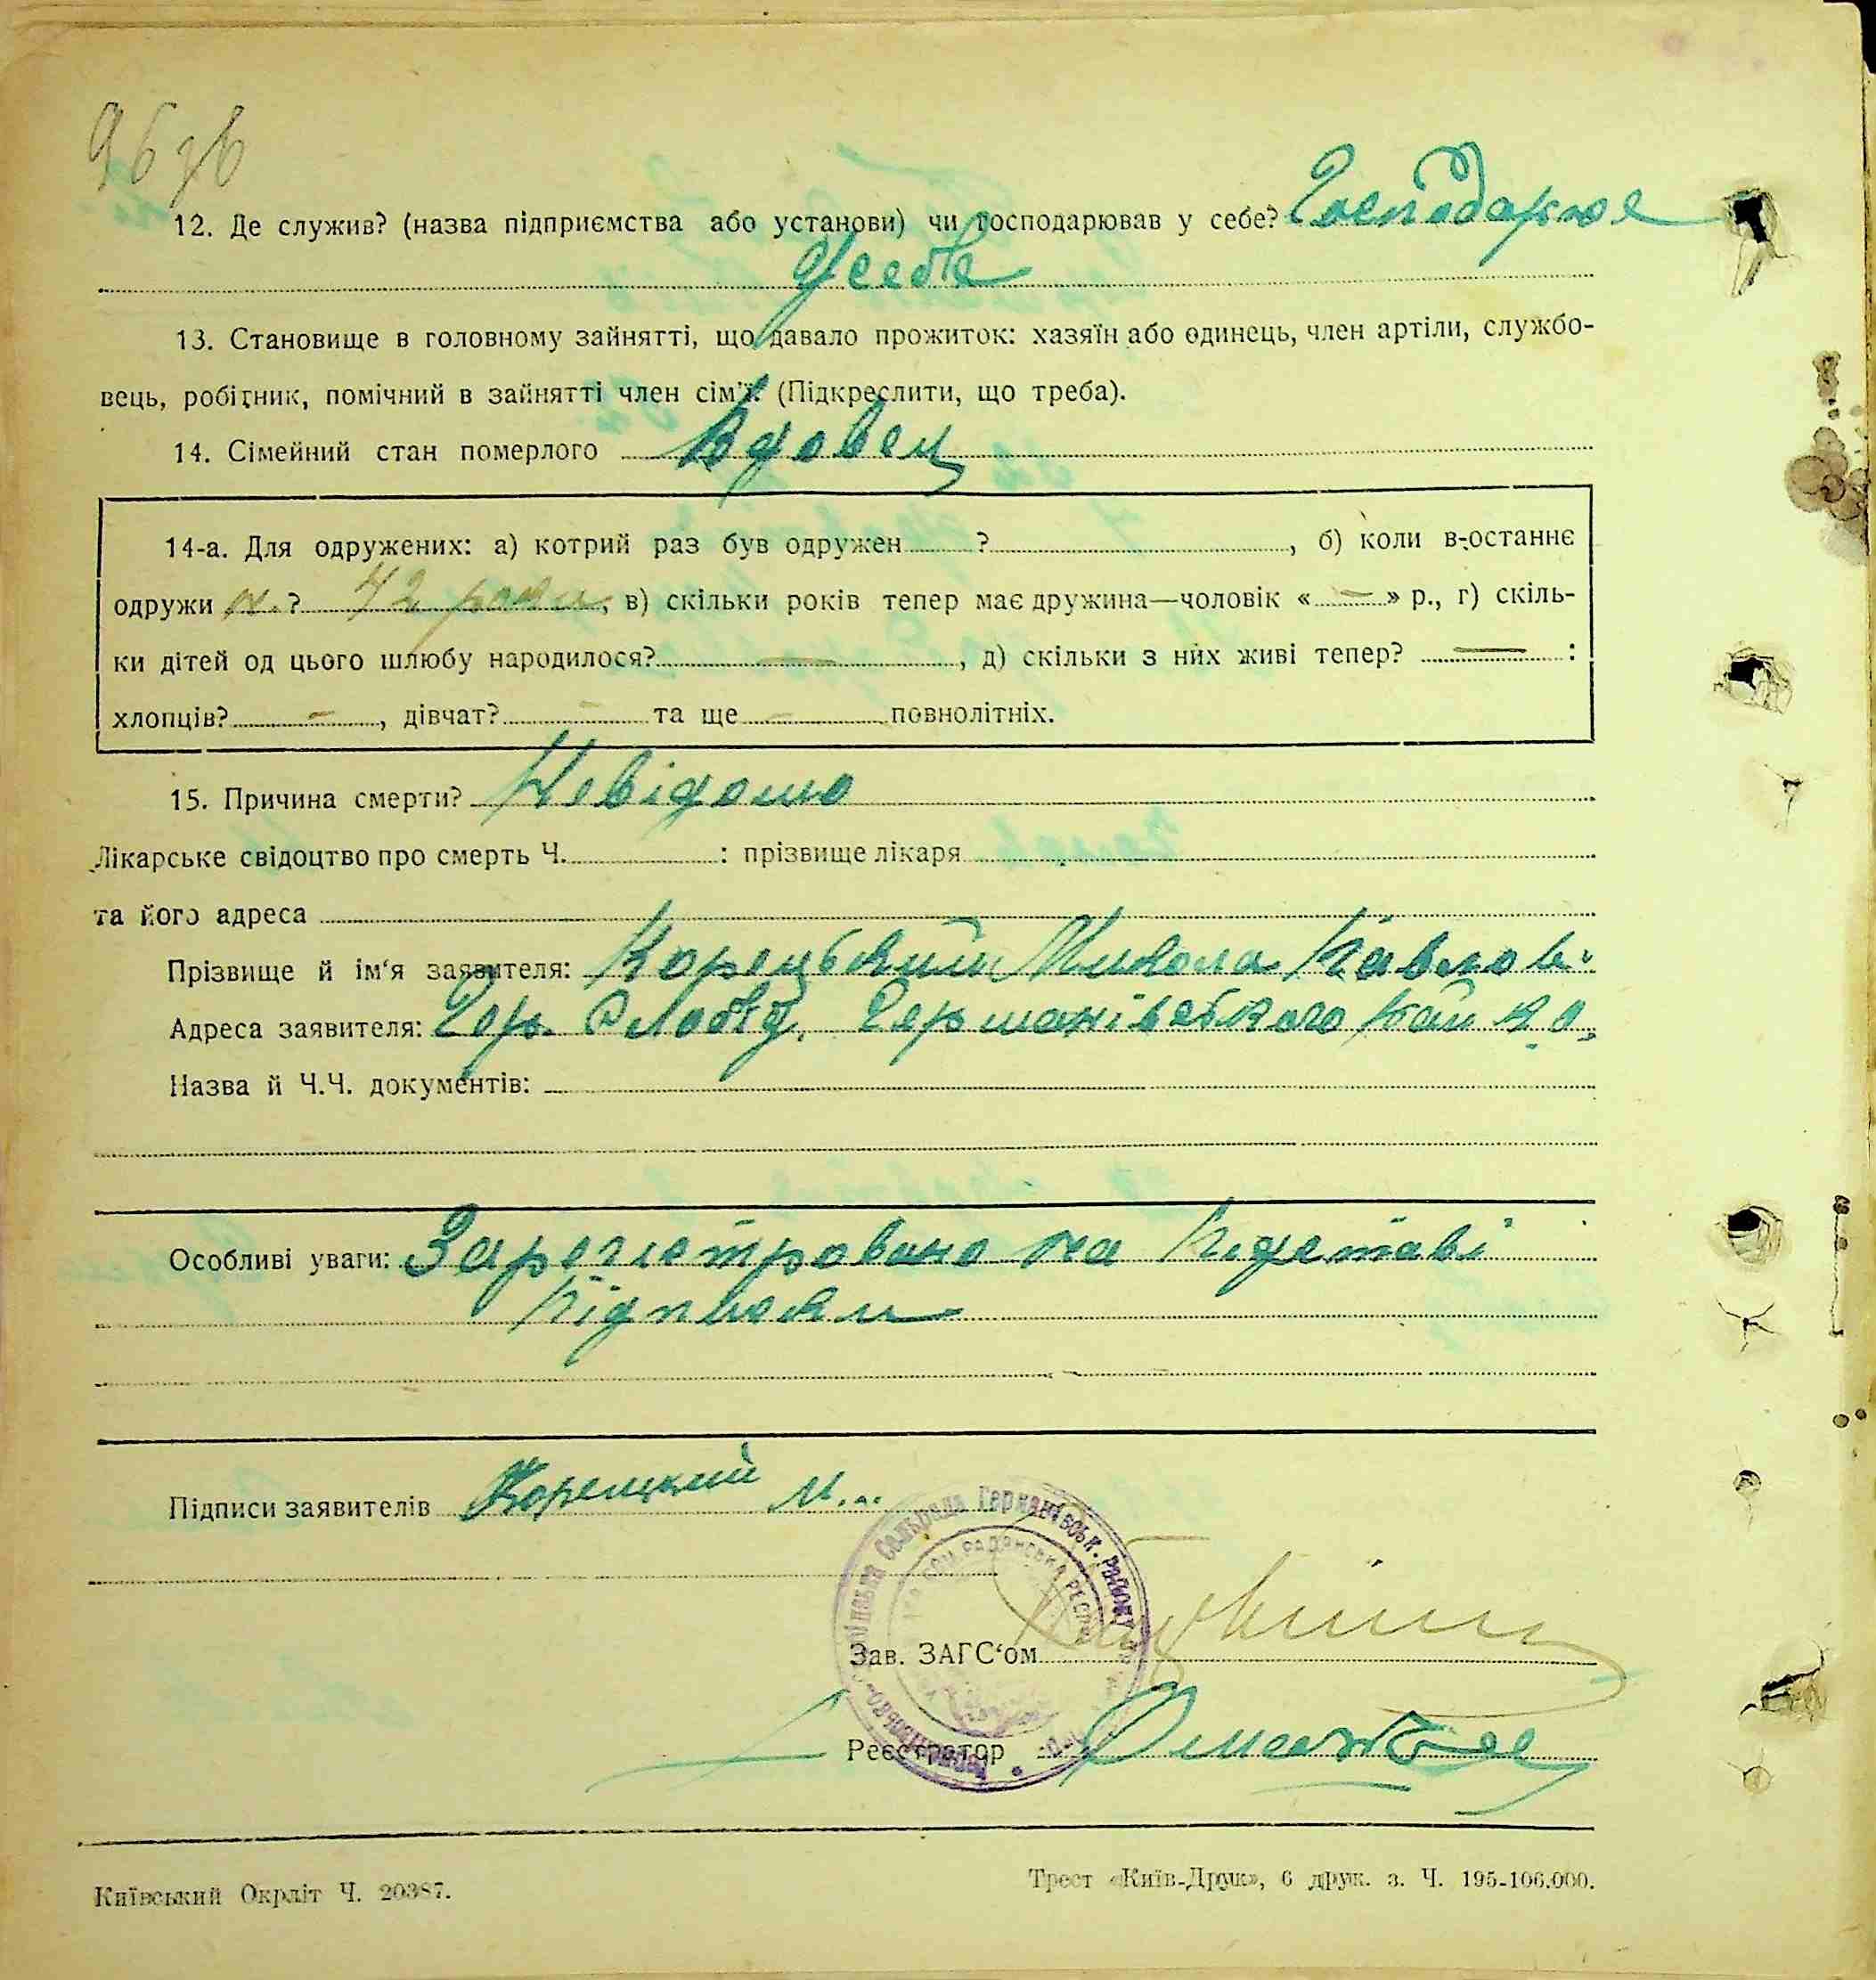 96 зв
12. Де служив? (назва підприємства або установи) чи господарював у себе? Господарює
У себе
13. Становище в головному зайнятті, що давало прожиток: хазяїн або одинець, член артіли, службо-
вець, робітник, помічний в зайнятті член сім'ї. (Підкреслити, що треба).
14. Сімейний стан померлого Вдовец
14-а. Для одружених: а) котрий раз був одружен ?, б) коли в-останнє
одружи ? 42 роки, в) скільки років тепер має дружина—чоловік «—» р., г) скіль-
ки дітей од цього шлюбу народилося? —, д) скільки з них живі тепер? — :
хлопців? —, дівчат? — та ще — повнолітніх.
15. Причина смерти? Невідомо
Лікарське свідоцтво про смерть Ч. : прізвище лікаря
та його адреса
Прізвище й ім'я заявителя: Корецький Микола Павлов.
Адреса заявителя: Гер. Слобід. Германівського Рай к.о.
Назва й Ч.Ч. документів:
Особливі уваги: Зарегістровано на Підставі
Підписки
Підписи заявителів Корецкий М...
Сельрада Германівськ. району
РАДЯНСЬКА
Зав. ЗАГС'ом
Реєстратор
Київський Окрліт Ч. 20387.
Трест «Київ-Друк», 6 друк. з. Ч. 195-106.000.